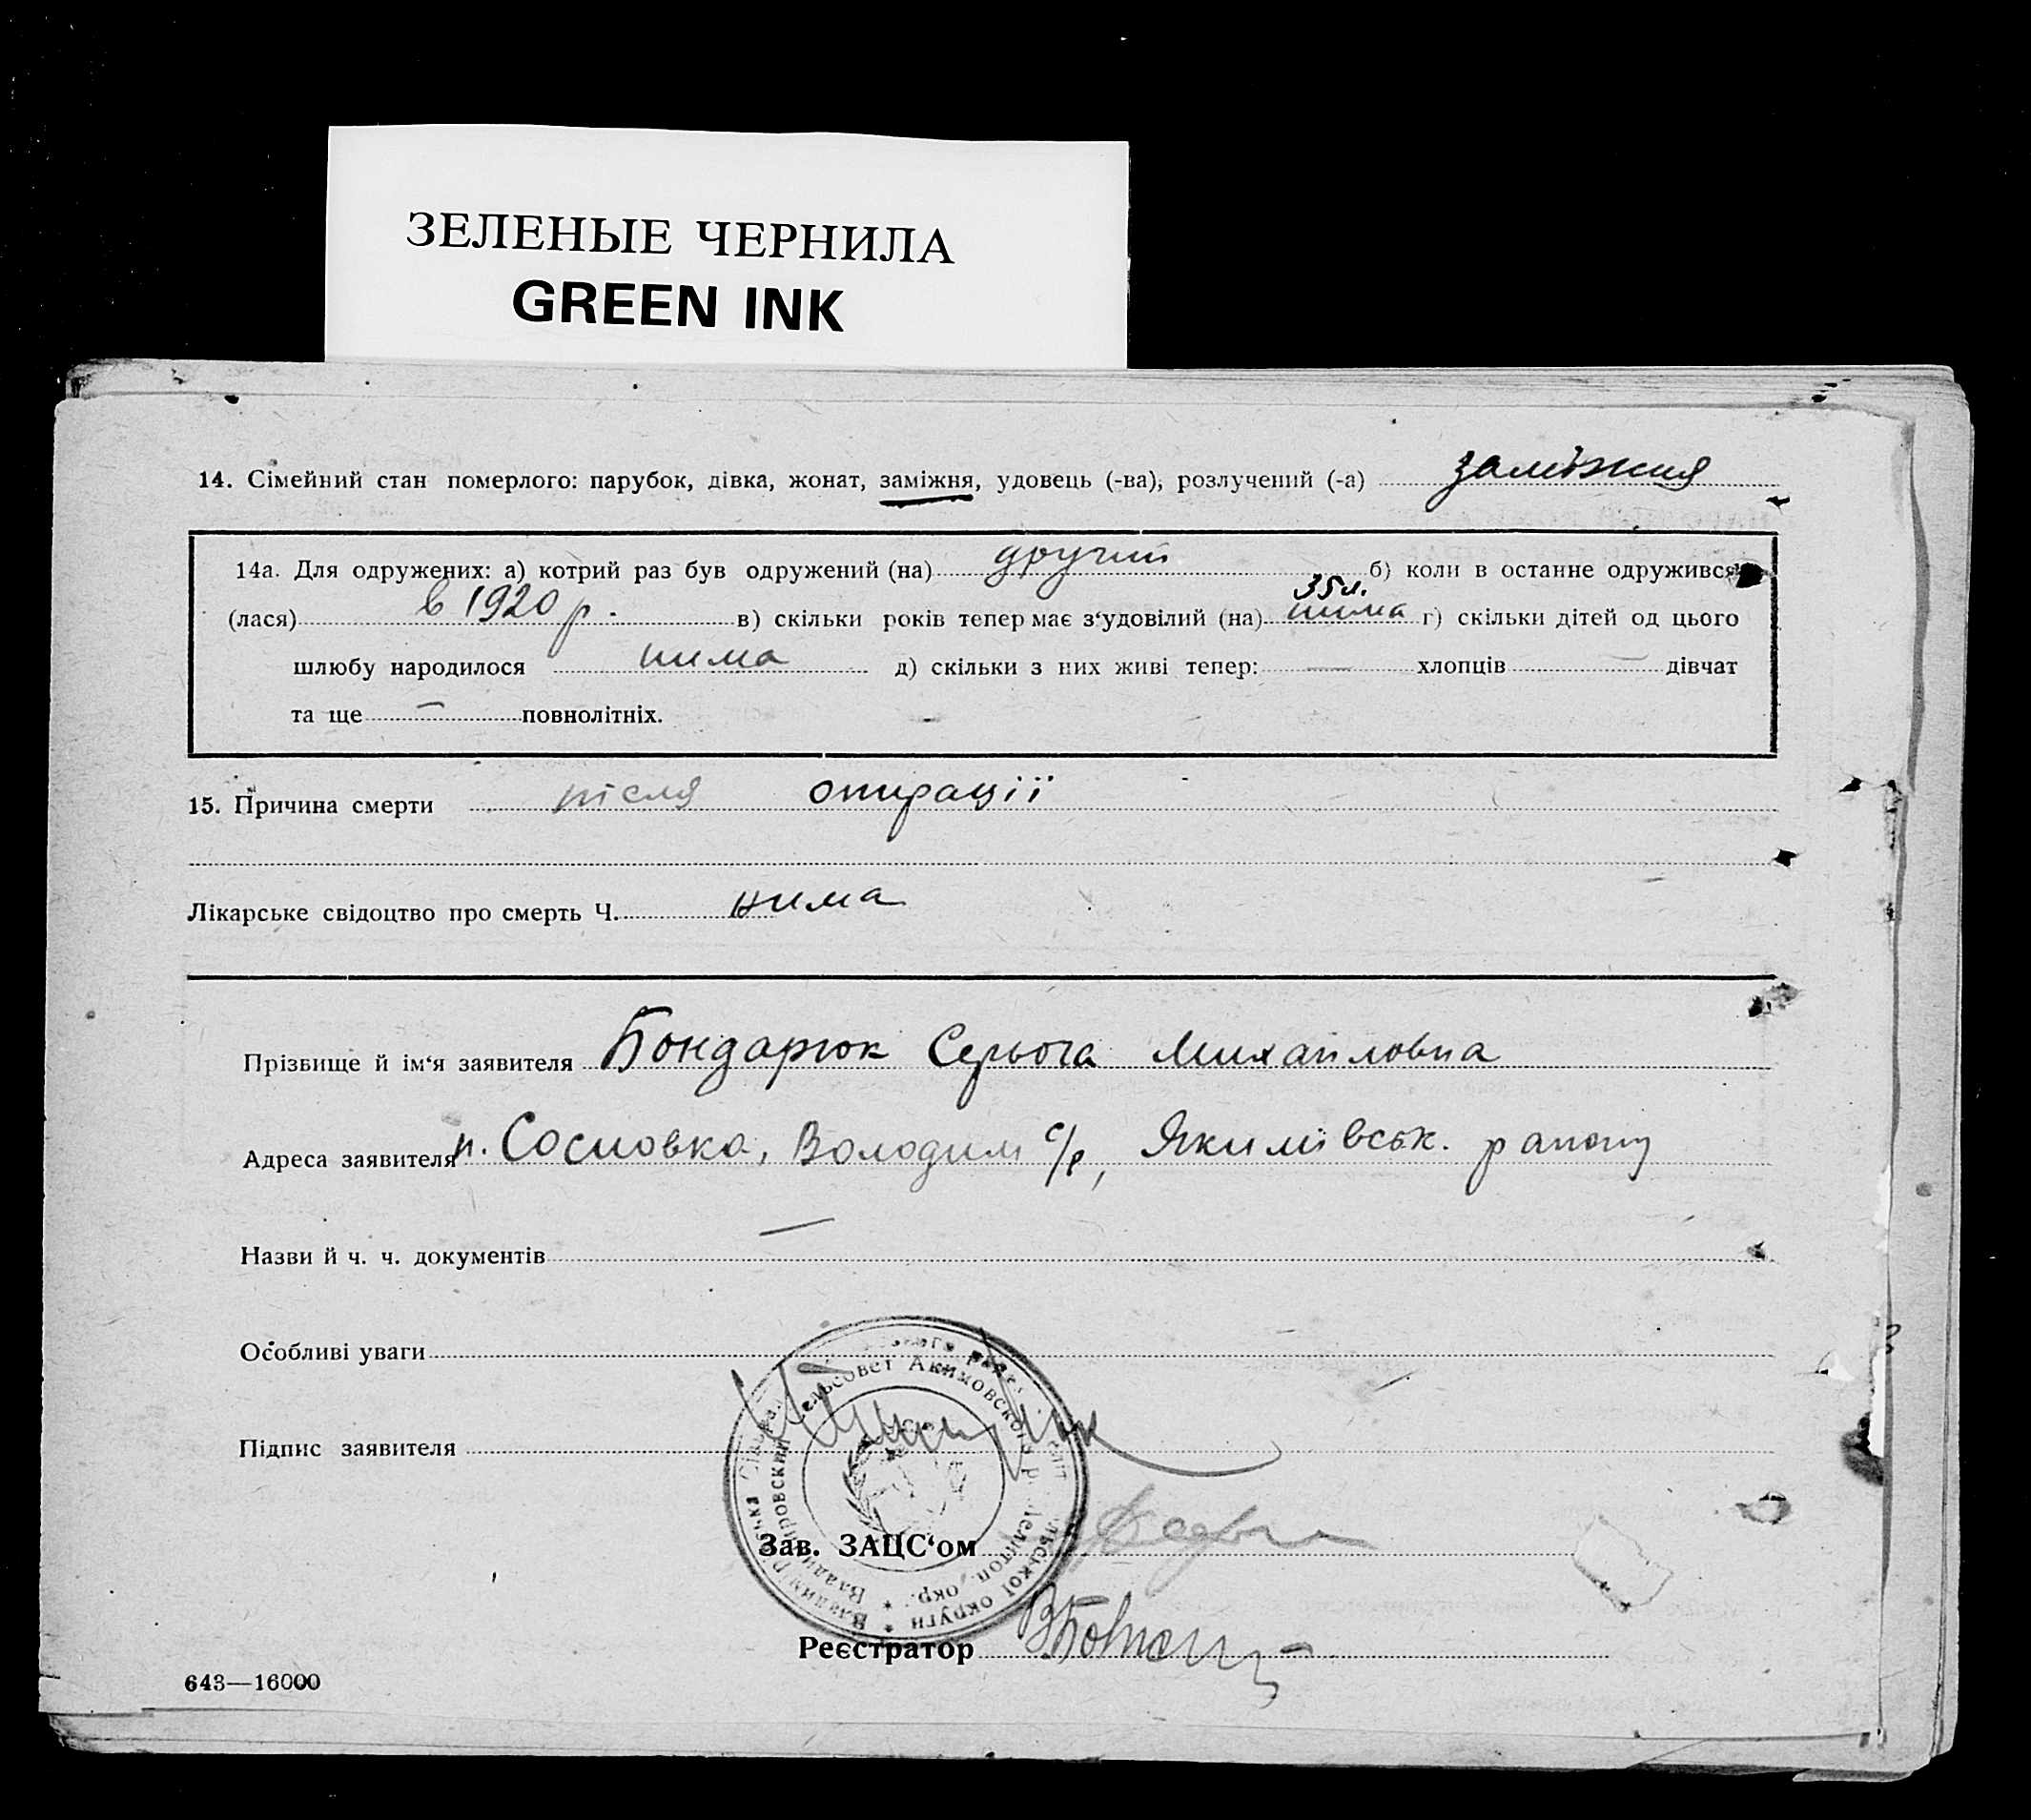 ЗЕЛЕНЫЕ ЧЕРНИЛА
GREEN INK
14. Сімейний стан померлого: парубок, дівка, жонат, заміжня, удовець (-ва), розлучений (-а) заміжня
14а. Для одружених: а) котрий раз був одружений (на) другий б) коли в останнє одружився
35 л.
(лася) в 1920 р. в) скільки років тепер має з‘удовілий (на) нима г) скільки дітей од цього
шлюбу народилося нима д) скільки з них живі тепер: — хлопців — дівчат
та ще — повнолітніх.
15. Причина смерти після опирації
Лікарське свідоцтво про смерть Ч. нима
Прізвище й ім‘я заявителя Бондарюк Серьога Михайловна
Адреса заявителя п. Сосновка, Володим с/р, Якимівськ. району
Назви й ч. ч. документів —
Особливі уваги
Підпис заявителя
сельсовет Акимовского р. Мелитоп. окр.
Зав. ЗАЦС‘ом
Реєстратор
643—16000